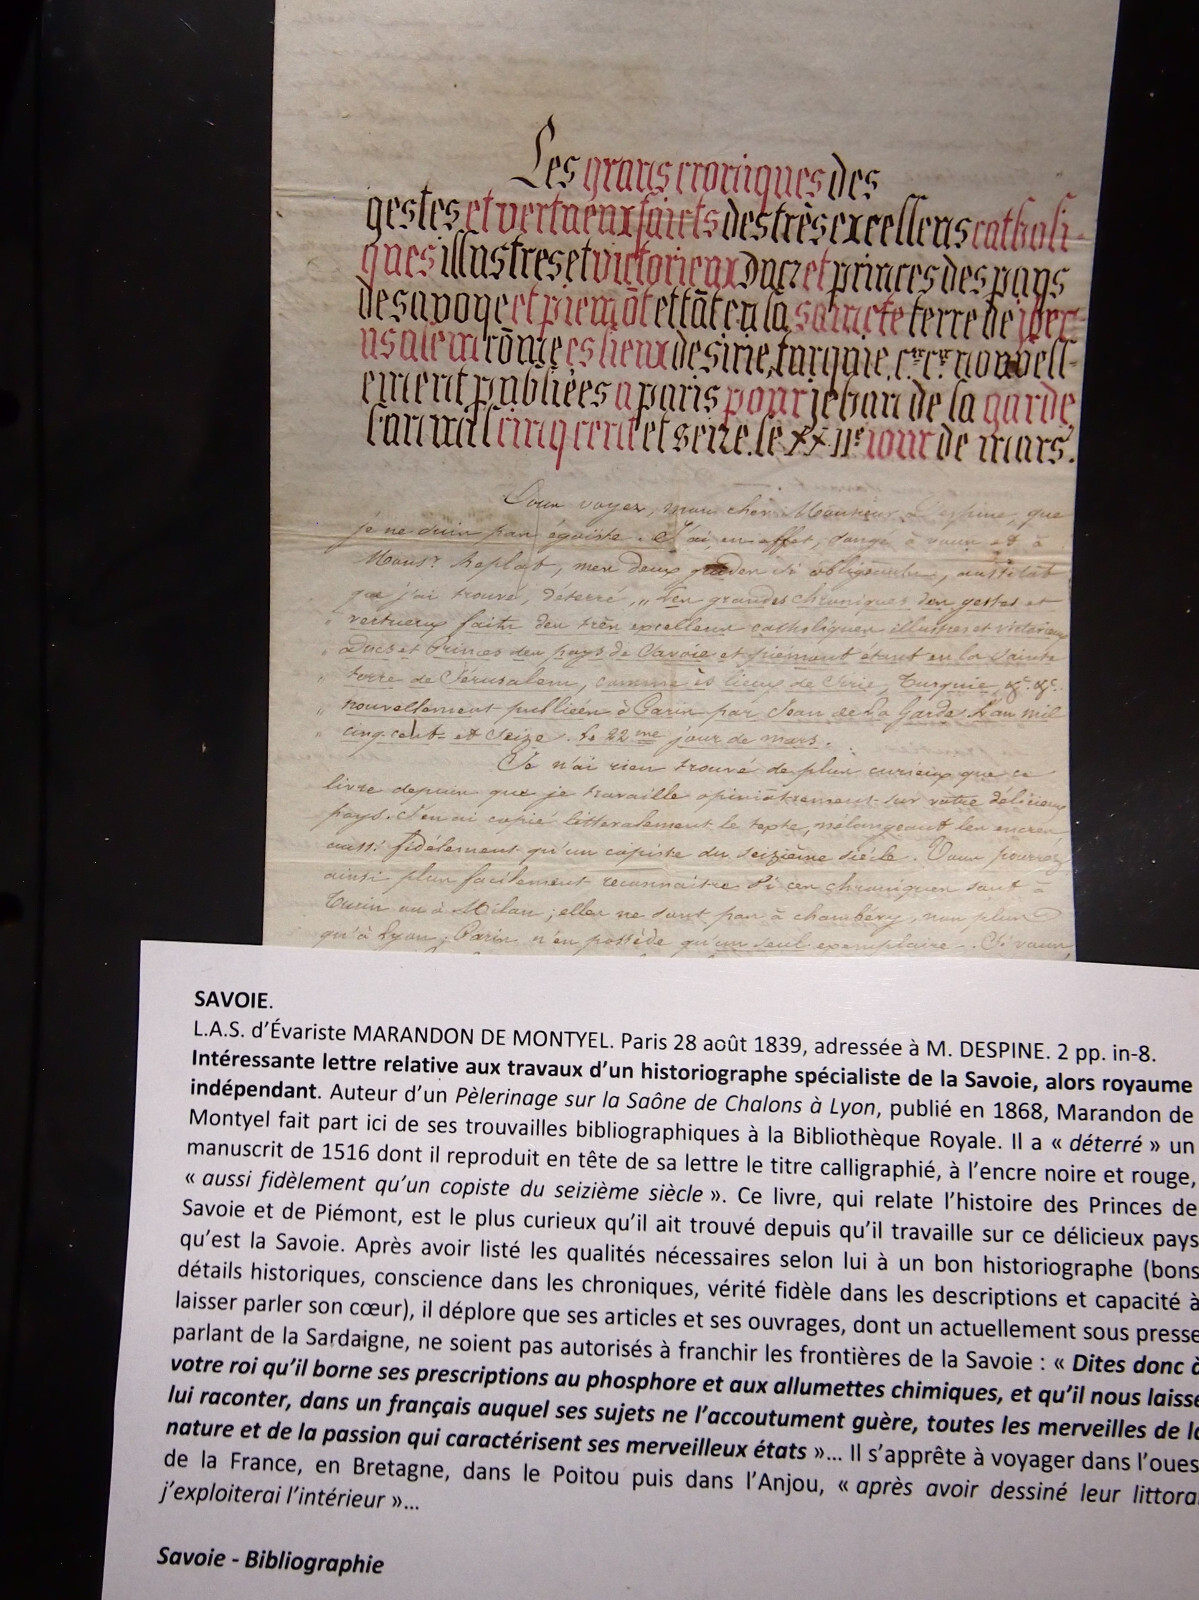 Les grans croniques des
gestes et vertueux faicts des très excellens catholi-
ques illustres et victorieux Ducz et princes des pays
de savoye et piemōt ettāt en la saincte terre de jher-
usalem cōme es lieux de sirie, turquie, &c. &c. nouvell-
ement publiées a paris pour jehan de la garde,
l'an mil cinq cent et seize. le XXIIe iour de mars.
Vous voyez, mon cher Monsieur Despine, que
je ne suis pas égoïste. J'ai, en effet, songé à vous et à
Monsr. Replat, mes deux guides si obligeants, aussitôt
que j'ai trouvé, déterré, „ les grandes chroniques des gestes et
„ vertueux faits des très excellens catholiques illustres et victorieux
„ Ducs et Princes des pays de Savoie et piémont étant en la Sainte
„ terre de Jérusalem, comme ès lieux de Sirie, Turquie, &c. &c.
„ nouvellement publiées à Paris par Jean de La Garde L'an mil
„ cinq cent et seize. le 22me jour de mars.
Je n'ai rien trouvé de plus curieux que ce
livre depuis que je travaille opiniâtrement sur votre délicieux
pays. J'en ai copié littéralement le texte, mélangeant les encres
aussi fidèlement qu'un copiste du seizième siècle. Vous pourrez
ainsi plus facilement reconnaître si ces chroniques sont à
Turin ou à Milan ; elles ne sont pas à chambéry, non plus
qu'à Lyon ; Paris n'en possède qu'un seul exemplaire. Si vous
SAVOIE.
L.A.S. d'Évariste MARANDON DE MONTYEL. Paris 28 août 1839, adressée à M. DESPINE. 2 pp. in-8.
Intéressante lettre relative aux travaux d'un historiographe spécialiste de la Savoie, alors royaume
indépendant. Auteur d'un Pèlerinage sur la Saône de Chalons à Lyon, publié en 1868, Marandon de
Montyel fait part ici de ses trouvailles bibliographiques à la Bibliothèque Royale. Il a « déterré » un
manuscrit de 1516 dont il reproduit en tête de sa lettre le titre calligraphié, à l'encre noire et rouge,
« aussi fidèlement qu'un copiste du seizième siècle ». Ce livre, qui relate l'histoire des Princes de
Savoie et de Piémont, est le plus curieux qu'il ait trouvé depuis qu'il travaille sur ce délicieux pays
qu'est la Savoie. Après avoir listé les qualités nécessaires selon lui à un bon historiographe (bons
détails historiques, conscience dans les chroniques, vérité fidèle dans les descriptions et capacité à
laisser parler son cœur), il déplore que ses articles et ses ouvrages, dont un actuellement sous presse
parlant de la Sardaigne, ne soient pas autorisés à franchir les frontières de la Savoie : « Dites donc à
votre roi qu'il borne ses prescriptions au phosphore et aux allumettes chimiques, et qu'il nous laisse
lui raconter, dans un français auquel ses sujets ne l'accoutument guère, toutes les merveilles de la
nature et de la passion qui caractérisent ses merveilleux états »... Il s'apprête à voyager dans l'oues
de la France, en Bretagne, dans le Poitou puis dans l'Anjou, « après avoir dessiné leur littora
j'exploiterai l'intérieur »...
Savoie - Bibliographie